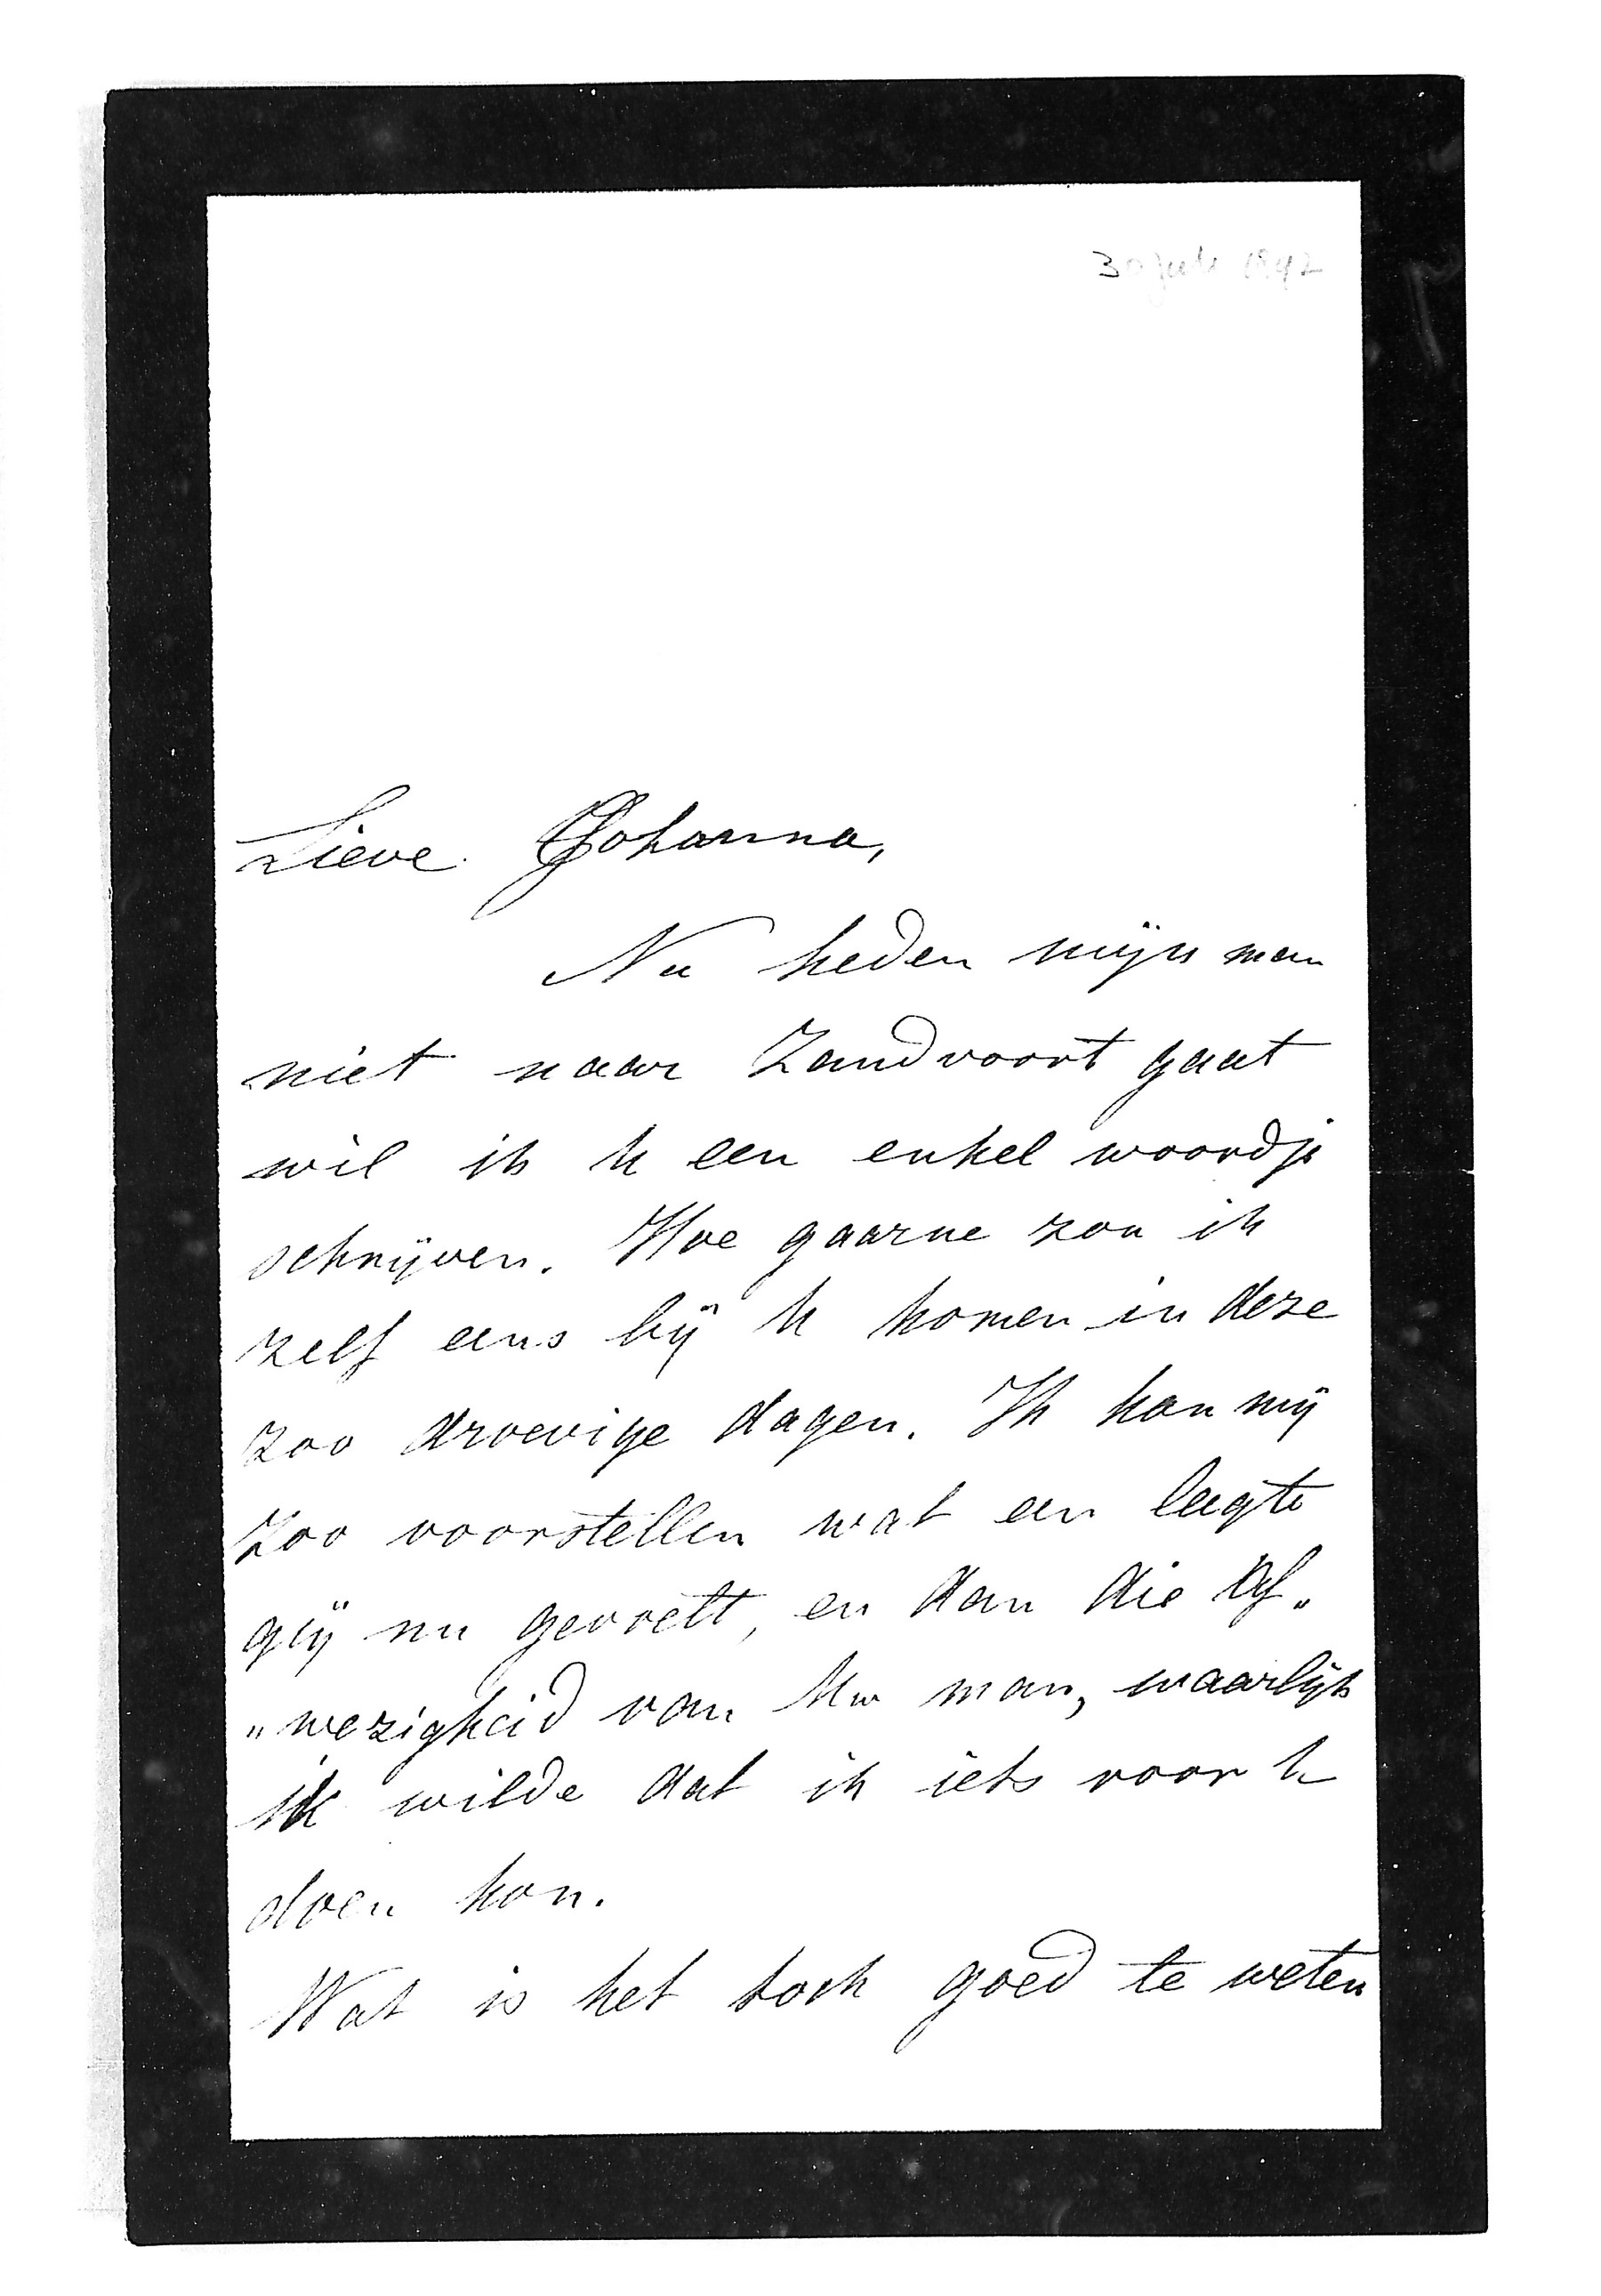 30 juli 1942
Lieve Johanna,
Nu heden mijn man
niet naar Zandvoort gaat
wil ik U een enkel woordje
schrijven. Hoe gaarne zou ik
zelf eens bij U komen in deze
zoo droevige dagen. Ik kan mij
zoo voorstellen wat een leegte
gij nu gevoelt, en dan die Af„
„wezigheid van Uw man, waarlijk
ik wilde dat ik iets voor U
doen kon.
Wat is het toch goed te weten